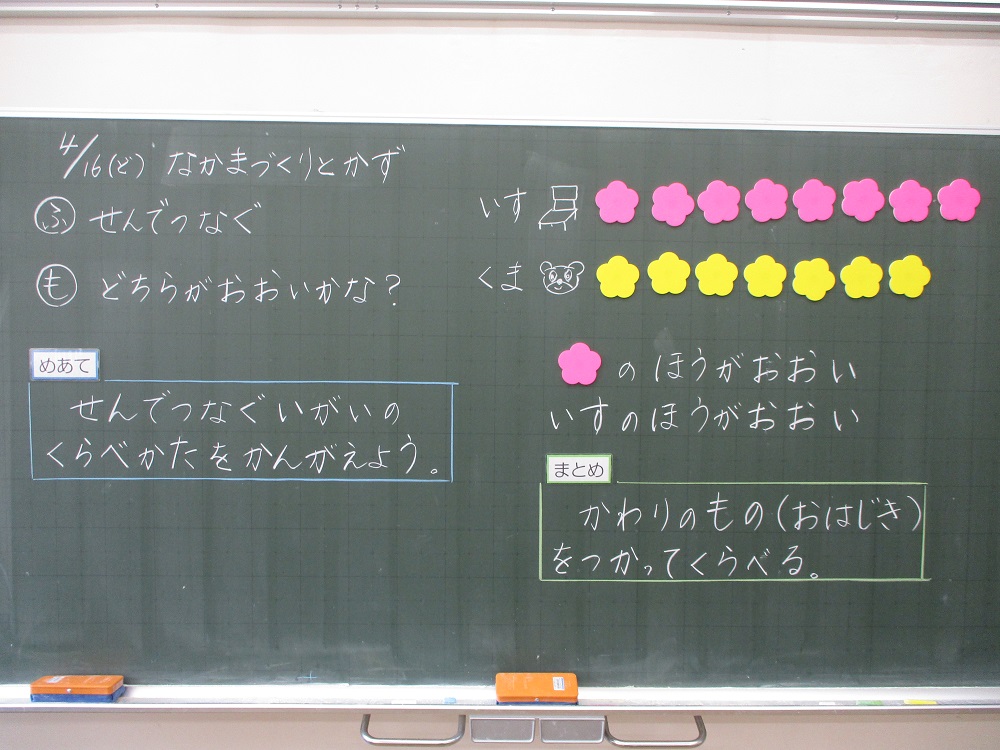 4/16(ど) なかまづくりとかず
ふ せんでつなぐ
も どちらがおおいかな？
めあて
せんでつなぐいがいの
くらべかたをかんがえよう。
いす
くま
のほうがおおい
いすのほうがおおい
まとめ
かわりのもの(おはじき)
をつかってくらべる。